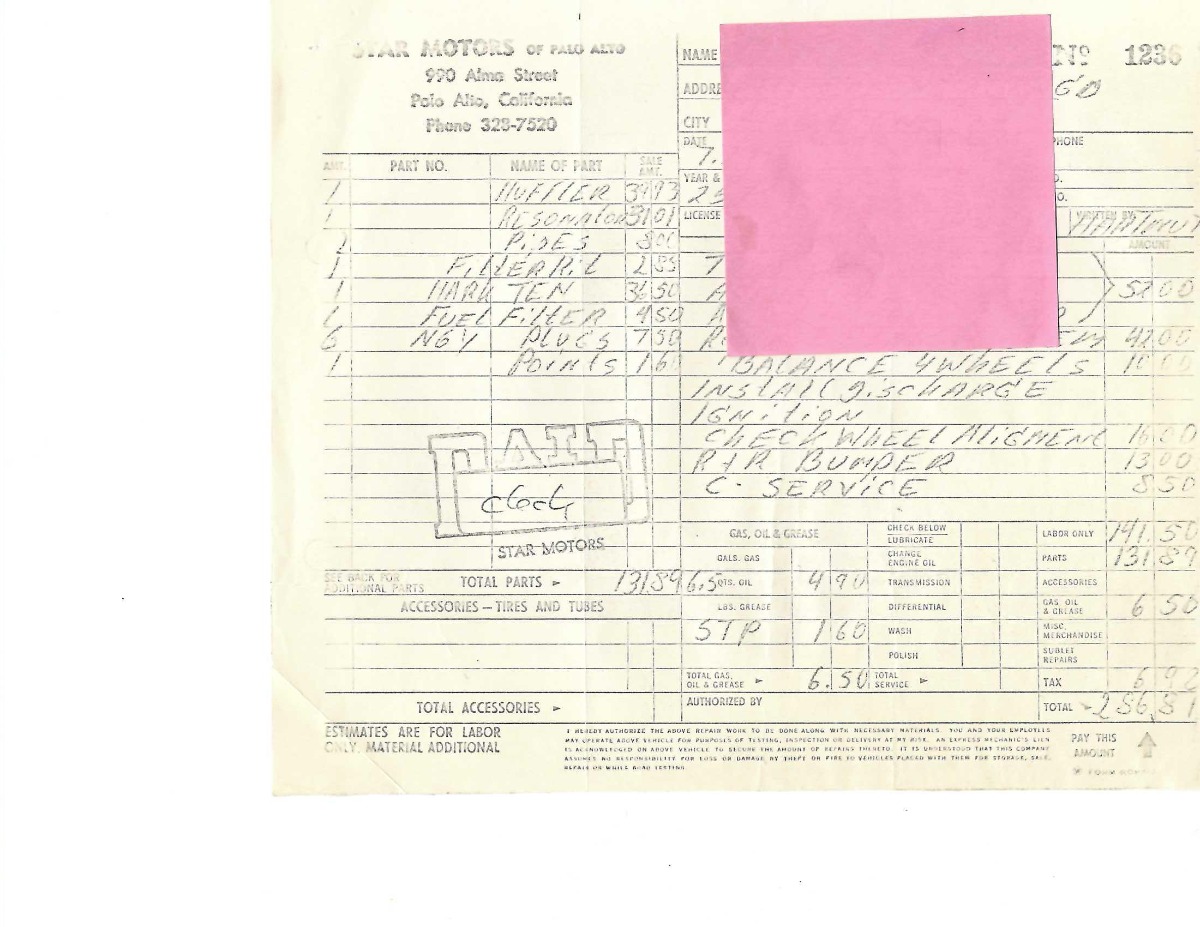 STAR MOTORS OF PALO ALTO
990 Alma Street
Palo Alto, California
Phone 328-7520
NAME
Nº 1236
ADDRE
CITY
DATE
7.
PHONE
YEAR &
25
O.
LICENSE
WRITTEN BY
HARTMUT
AMT. PART NO. NAME OF PART SALE AMT.
1 MUFFLER 39 93
1 RESONATOR 31 01
PIPES 8 00
1 FILTER Kit 2 85
1 MARK TEN 36 50
1 FUEL FILTER 4 50
6 NGY PLUGS 7 50
1 Points 1 60
AMOUNT
52 00
42.00
BALANCE 4 WHEELS 10 00
INSTALL DISCHARGE
IGNITION
CHECK WHEEL ALIGMENT 16.00
R+R BUMPER 13 00
C. SERVICE 8 50
PAID
STAR MOTORS
SEE BACK FOR
ADDITIONAL PARTS
TOTAL PARTS 131 89
ACCESSORIES — TIRES AND TUBES
TOTAL ACCESSORIES
GAS, OIL & GREASE
GALS. GAS
6.5 QTS. OIL 4 90
LBS. GREASE
STP 1 60
TOTAL GAS,
OIL & GREASE 6.50
CHECK BELOW
LUBRICATE
CHANGE
ENGINE OIL
TRANSMISSION
DIFFERENTIAL
WASH
POLISH
TOTAL
SERVICE
LABOR ONLY 141.50
PARTS 131 89
ACCESSORIES
GAS, OIL
& GREASE 6 50
MISC.
MERCHANDISE
SUBLET
REPAIRS
TAX 6 92
AUTHORIZED BY
TOTAL 286.81
ESTIMATES ARE FOR LABOR
ONLY, MATERIAL ADDITIONAL
I HEREBY AUTHORIZE THE ABOVE REPAIR WORK TO BE DONE ALONG WITH NECESSARY MATERIALS. YOU AND YOUR EMPLOYEES
MAY OPERATE ABOVE VEHICLE FOR PURPOSES OF TESTING, INSPECTION OR DELIVERY AT MY RISK. AN EXPRESS MECHANIC'S LIEN
IS ACKNOWLEDGED ON ABOVE VEHICLE TO SECURE THE AMOUNT OF REPAIRS THERETO. IT IS UNDERSTOOD THAT THIS COMPANY
ASSUMES NO RESPONSIBILITY FOR LOSS OR DAMAGE BY THEFT OR FIRE TO VEHICLES PLACED WITH THEM FOR STORAGE, SALE,
REPAIR OR WHILE ROAD TESTING.
PAY THIS
AMOUNT